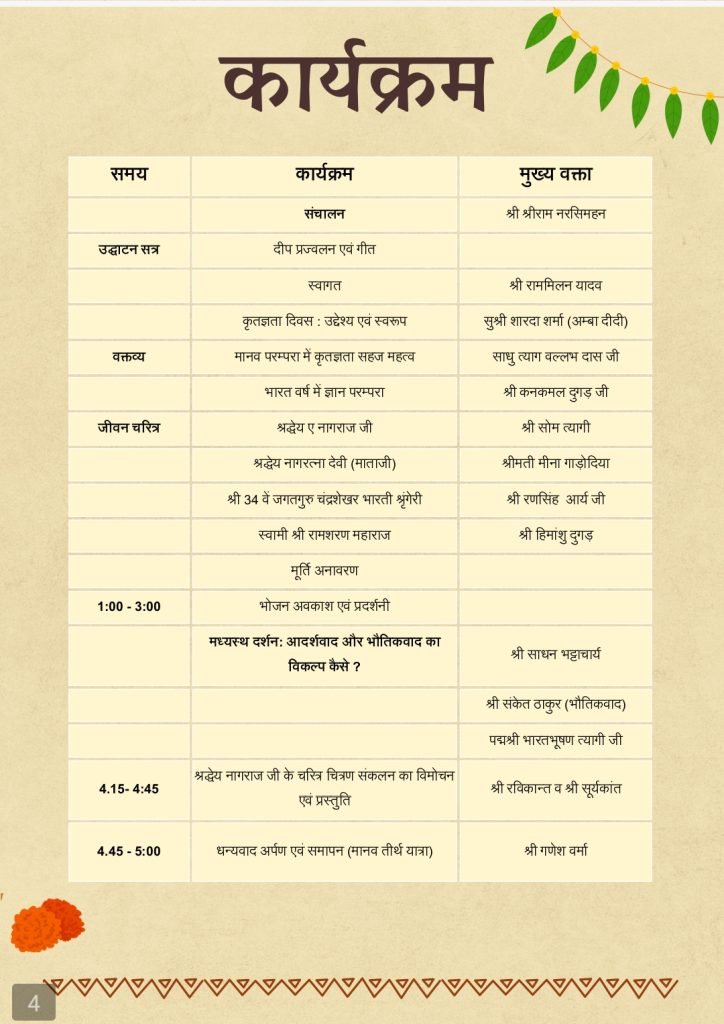 कार्यक्रम
समय कार्यक्रम मुख्य वक्ता
संचालन श्री श्रीराम नरसिमहन
उद्घाटन सत्र दीप प्रज्वलन एवं गीत
स्वागत श्री राममिलन यादव
कृतज्ञता दिवस : उद्देश्य एवं स्वरूप सुश्री शारदा शर्मा (अम्बा दीदी)
वक्तव्य मानव परम्परा में कृतज्ञता सहज महत्व साधु त्याग वल्लभ दास जी
भारत वर्ष में ज्ञान परम्परा श्री कनकमल दुगड़ जी
जीवन चरित्र श्रद्धेय ए नागराज जी श्री सोम त्यागी
श्रद्धेय नागरत्ना देवी (माताजी) श्रीमती मीना गाड़ोदिया
श्री 34 वें जगतगुरु चंद्रशेखर भारती श्रृंगेरी श्री रणसिंह आर्य जी
स्वामी श्री रामशरण महाराज श्री हिमांशु दुगड़
मूर्ति अनावरण
1:00 - 3:00 भोजन अवकाश एवं प्रदर्शनी
मध्यस्थ दर्शन: आदर्शवाद और भौतिकवाद का
विकल्प कैसे ? श्री साधन भट्टाचार्य
श्री संकेत ठाकुर (भौतिकवाद)
पद्मश्री भारतभूषण त्यागी जी
4.15- 4:45 श्रद्धेय नागराज जी के चरित्र चित्रण संकलन का विमोचन
एवं प्रस्तुति श्री रविकान्त व श्री सूर्यकांत
4.45 - 5:00 धन्यवाद अर्पण एवं समापन (मानव तीर्थ यात्रा) श्री गणेश वर्मा
4